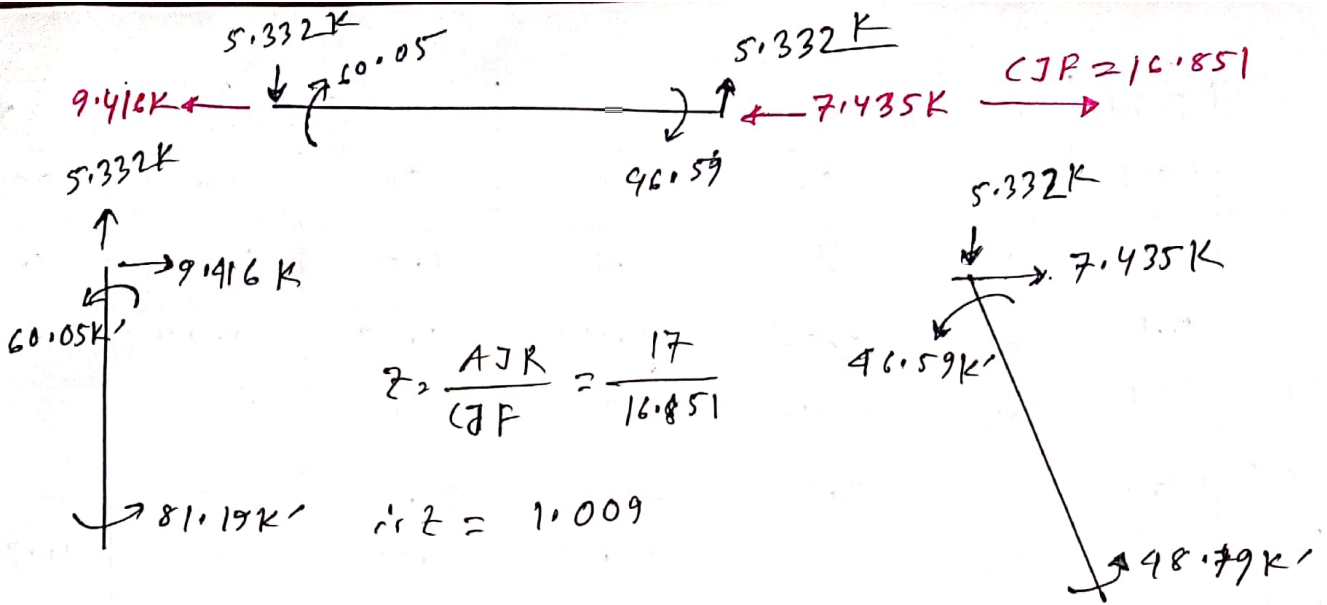 5.332K
60.05
5.332K
CJF = 16.851
9.416K
7.435K
5.332K
46.59
5.332K
9.416 K
7.435K
60.05K'
Z = AJR / CJF = 17 / 16.851
46.59K'
81.19K'
∴ Z = 1.009
48.79K'